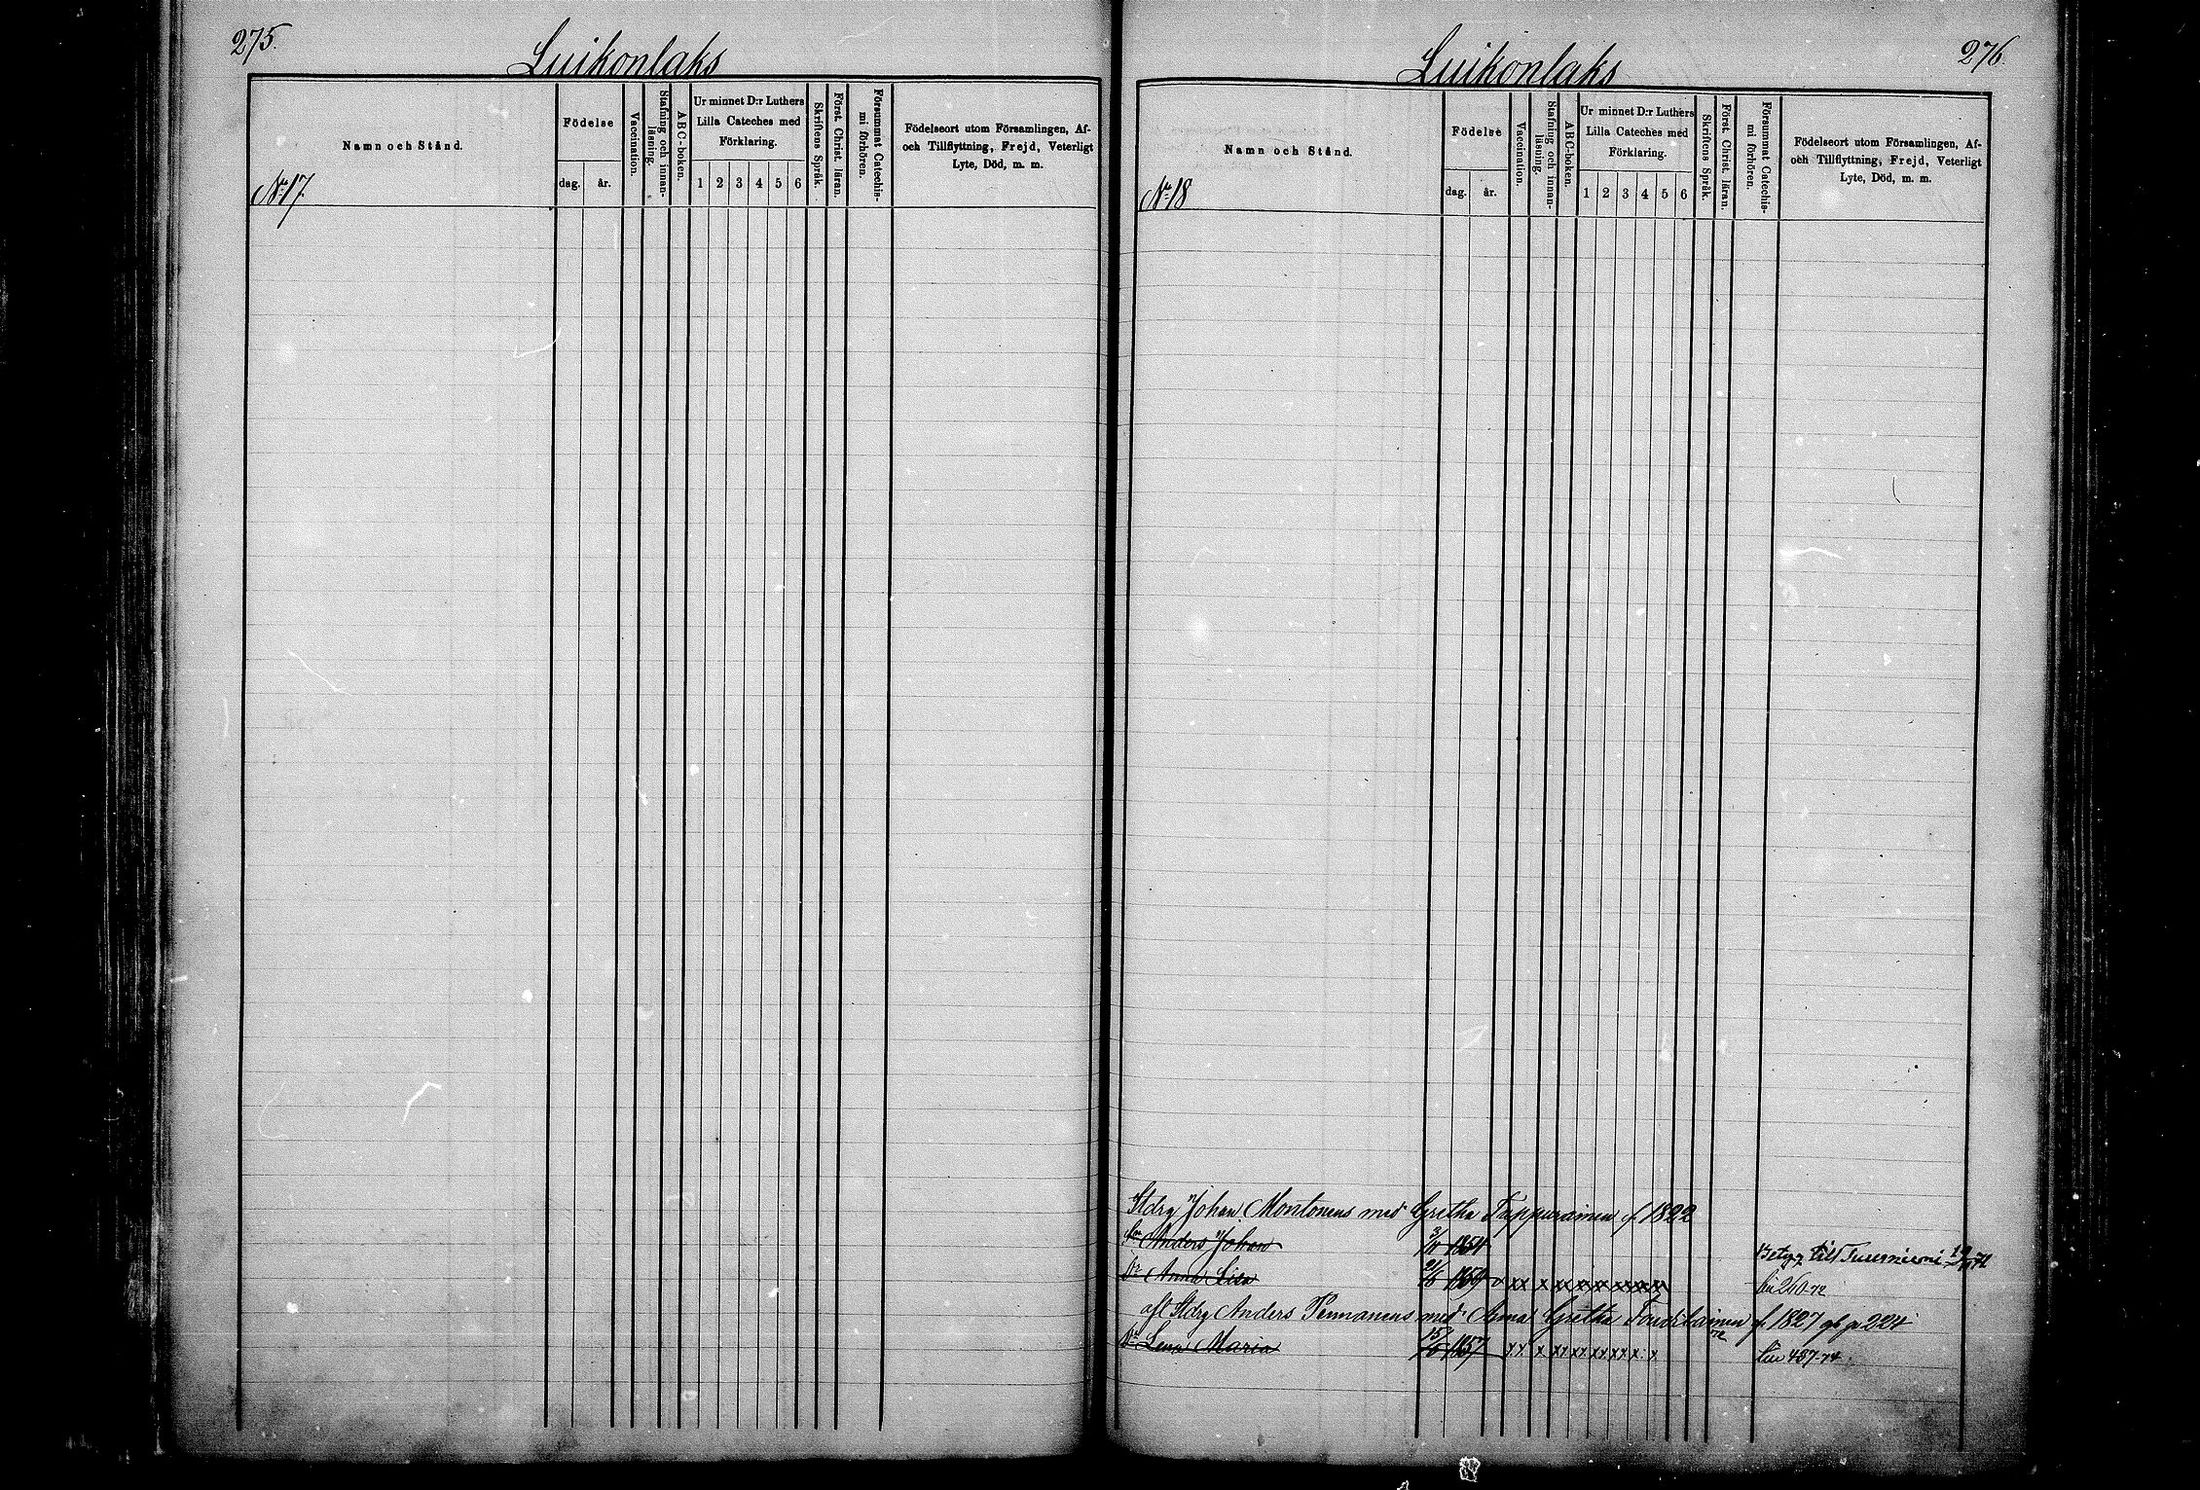 275.
Luikonlaks
Namn och Stånd.
Födelse
dag.
år.
Vaccination.
Stafning och innan-
läsning.
ABC-boken.
Ur minnet D:r Luthers
Lilla Cateches med
Förklaring.
1 2 3 4 5 6
Skriftens Språk.
Först. Christ. läran.
Försummat Catechis-
mi förhören.
Födelseort utom Församlingen, Af-
och Tillflyttning, Frejd, Veterligt
Lyte, Död, m. m.
No 17.
Luikonlaks
276.
Namn och Stånd.
Födelse
dag.
år.
Vaccination.
Stafning och innan-
läsning.
ABC-boken.
Ur minnet D:r Luthers
Lilla Cateches med
Förklaring.
1 2 3 4 5 6
Skriftens Språk.
Först. Christ. läran.
Försummat Catechis-
mi förhören.
Födelseort utom Församlingen, Af-
och Tillflyttning, Frejd, Veterligt
Lyte, Död, m. m.
No 18
Stdrg Johan Montonens med Gretha Tappurainen f. 1822
Sn Anders Johan 1854 Betyg till Tuusniemi
Dr Anna Lisa 1859 x xx x xx xx xx xx xx xx 260-72
afl Stdrg Anders Pennanens med Anna Gretha f. 1827 224
Dr Lena Maria 15/ 1857 xx x xx xx xx xx x x 457-74